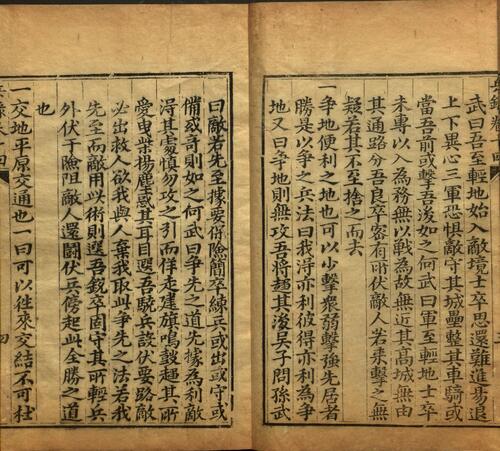 武曰吾至輕地始入敵境士卒思還難進易退
上下異心三軍恐懼敵守其城壘整其車騎或
當吾前或擊吾後如之何武曰軍至輕地士卒
未專以入為務無以戰為故無近其高城無由
其通路分吾良卒密有所伏敵人若來擊之無
疑若其不至捨之而去
一爭地便利之地也可以少擊衆弱擊強先居者
勝是以爭之兵法曰我淂亦利彼得亦利為爭
地又曰爭地則無攻吾將趨其後吴子問孫武
曰敵若先至據要保險簡卒練兵或出或守或
備或竒則如之何武曰爭先之道先據為利敵
淂其處慎勿攻之引而佯走建旗鳴鼓趨其所
愛曳柴揚塵惑其耳目選吾驍兵設伏要路敵
必出救人欲我與人棄我取此爭先之法若我
先至而敵用此術則選吾銳卒固守其所輕兵
外伏于險阻敵人還鬭伏兵傍起此全勝之道
也
一交地平原交通也一曰可以徃來交結不可杜